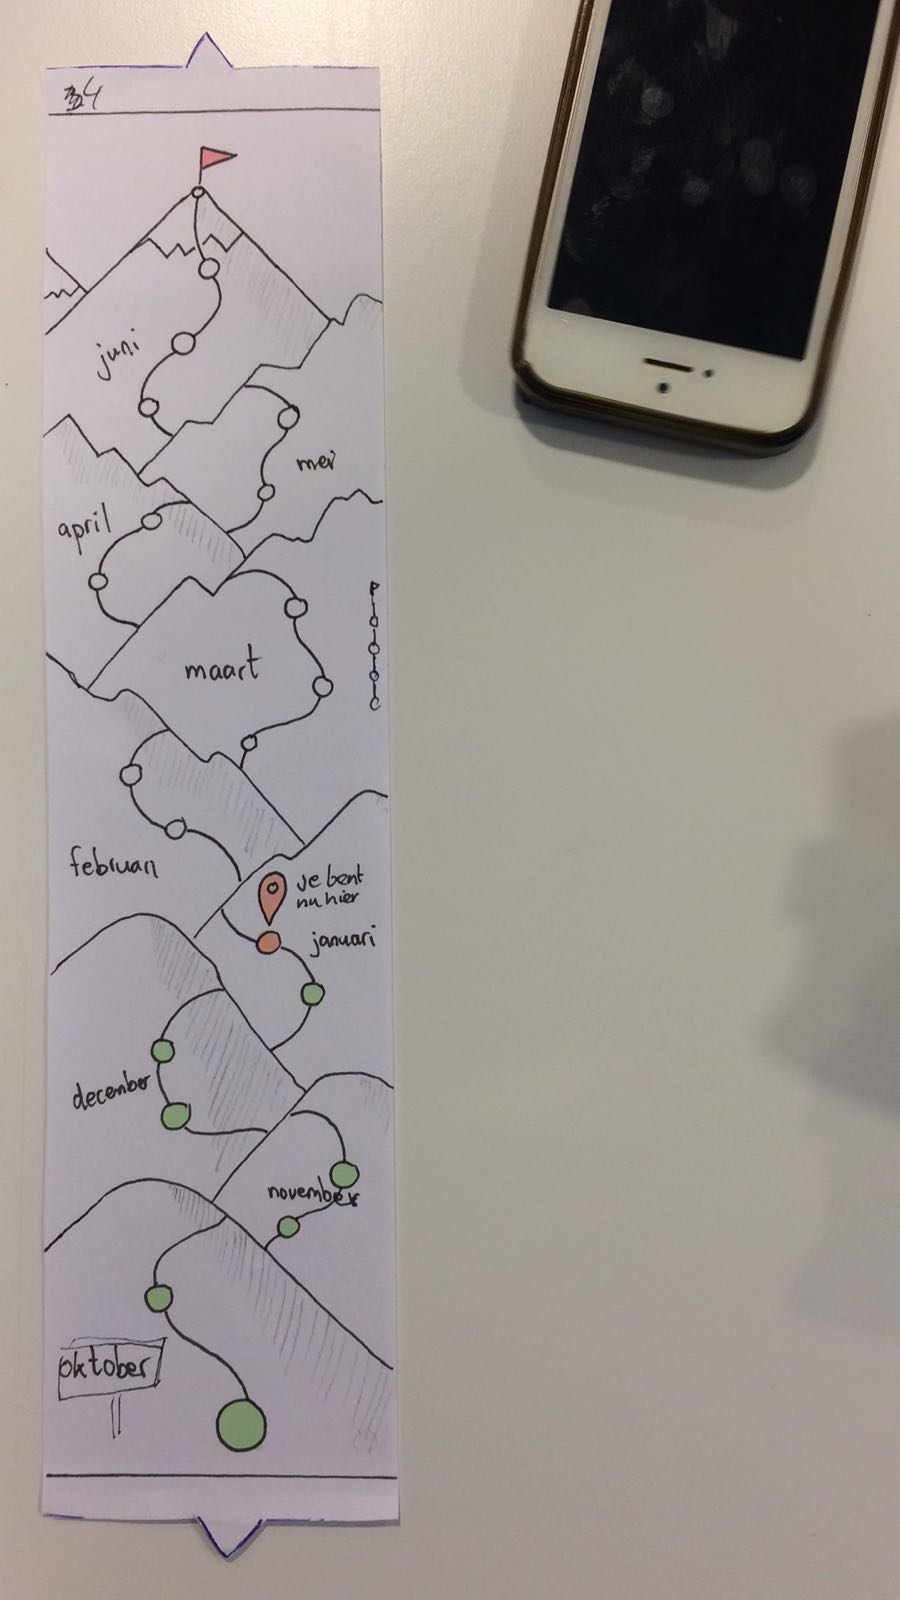 4
juni
mei
april
maart
februari
je bent
nu hier
januari
december
november
oktober